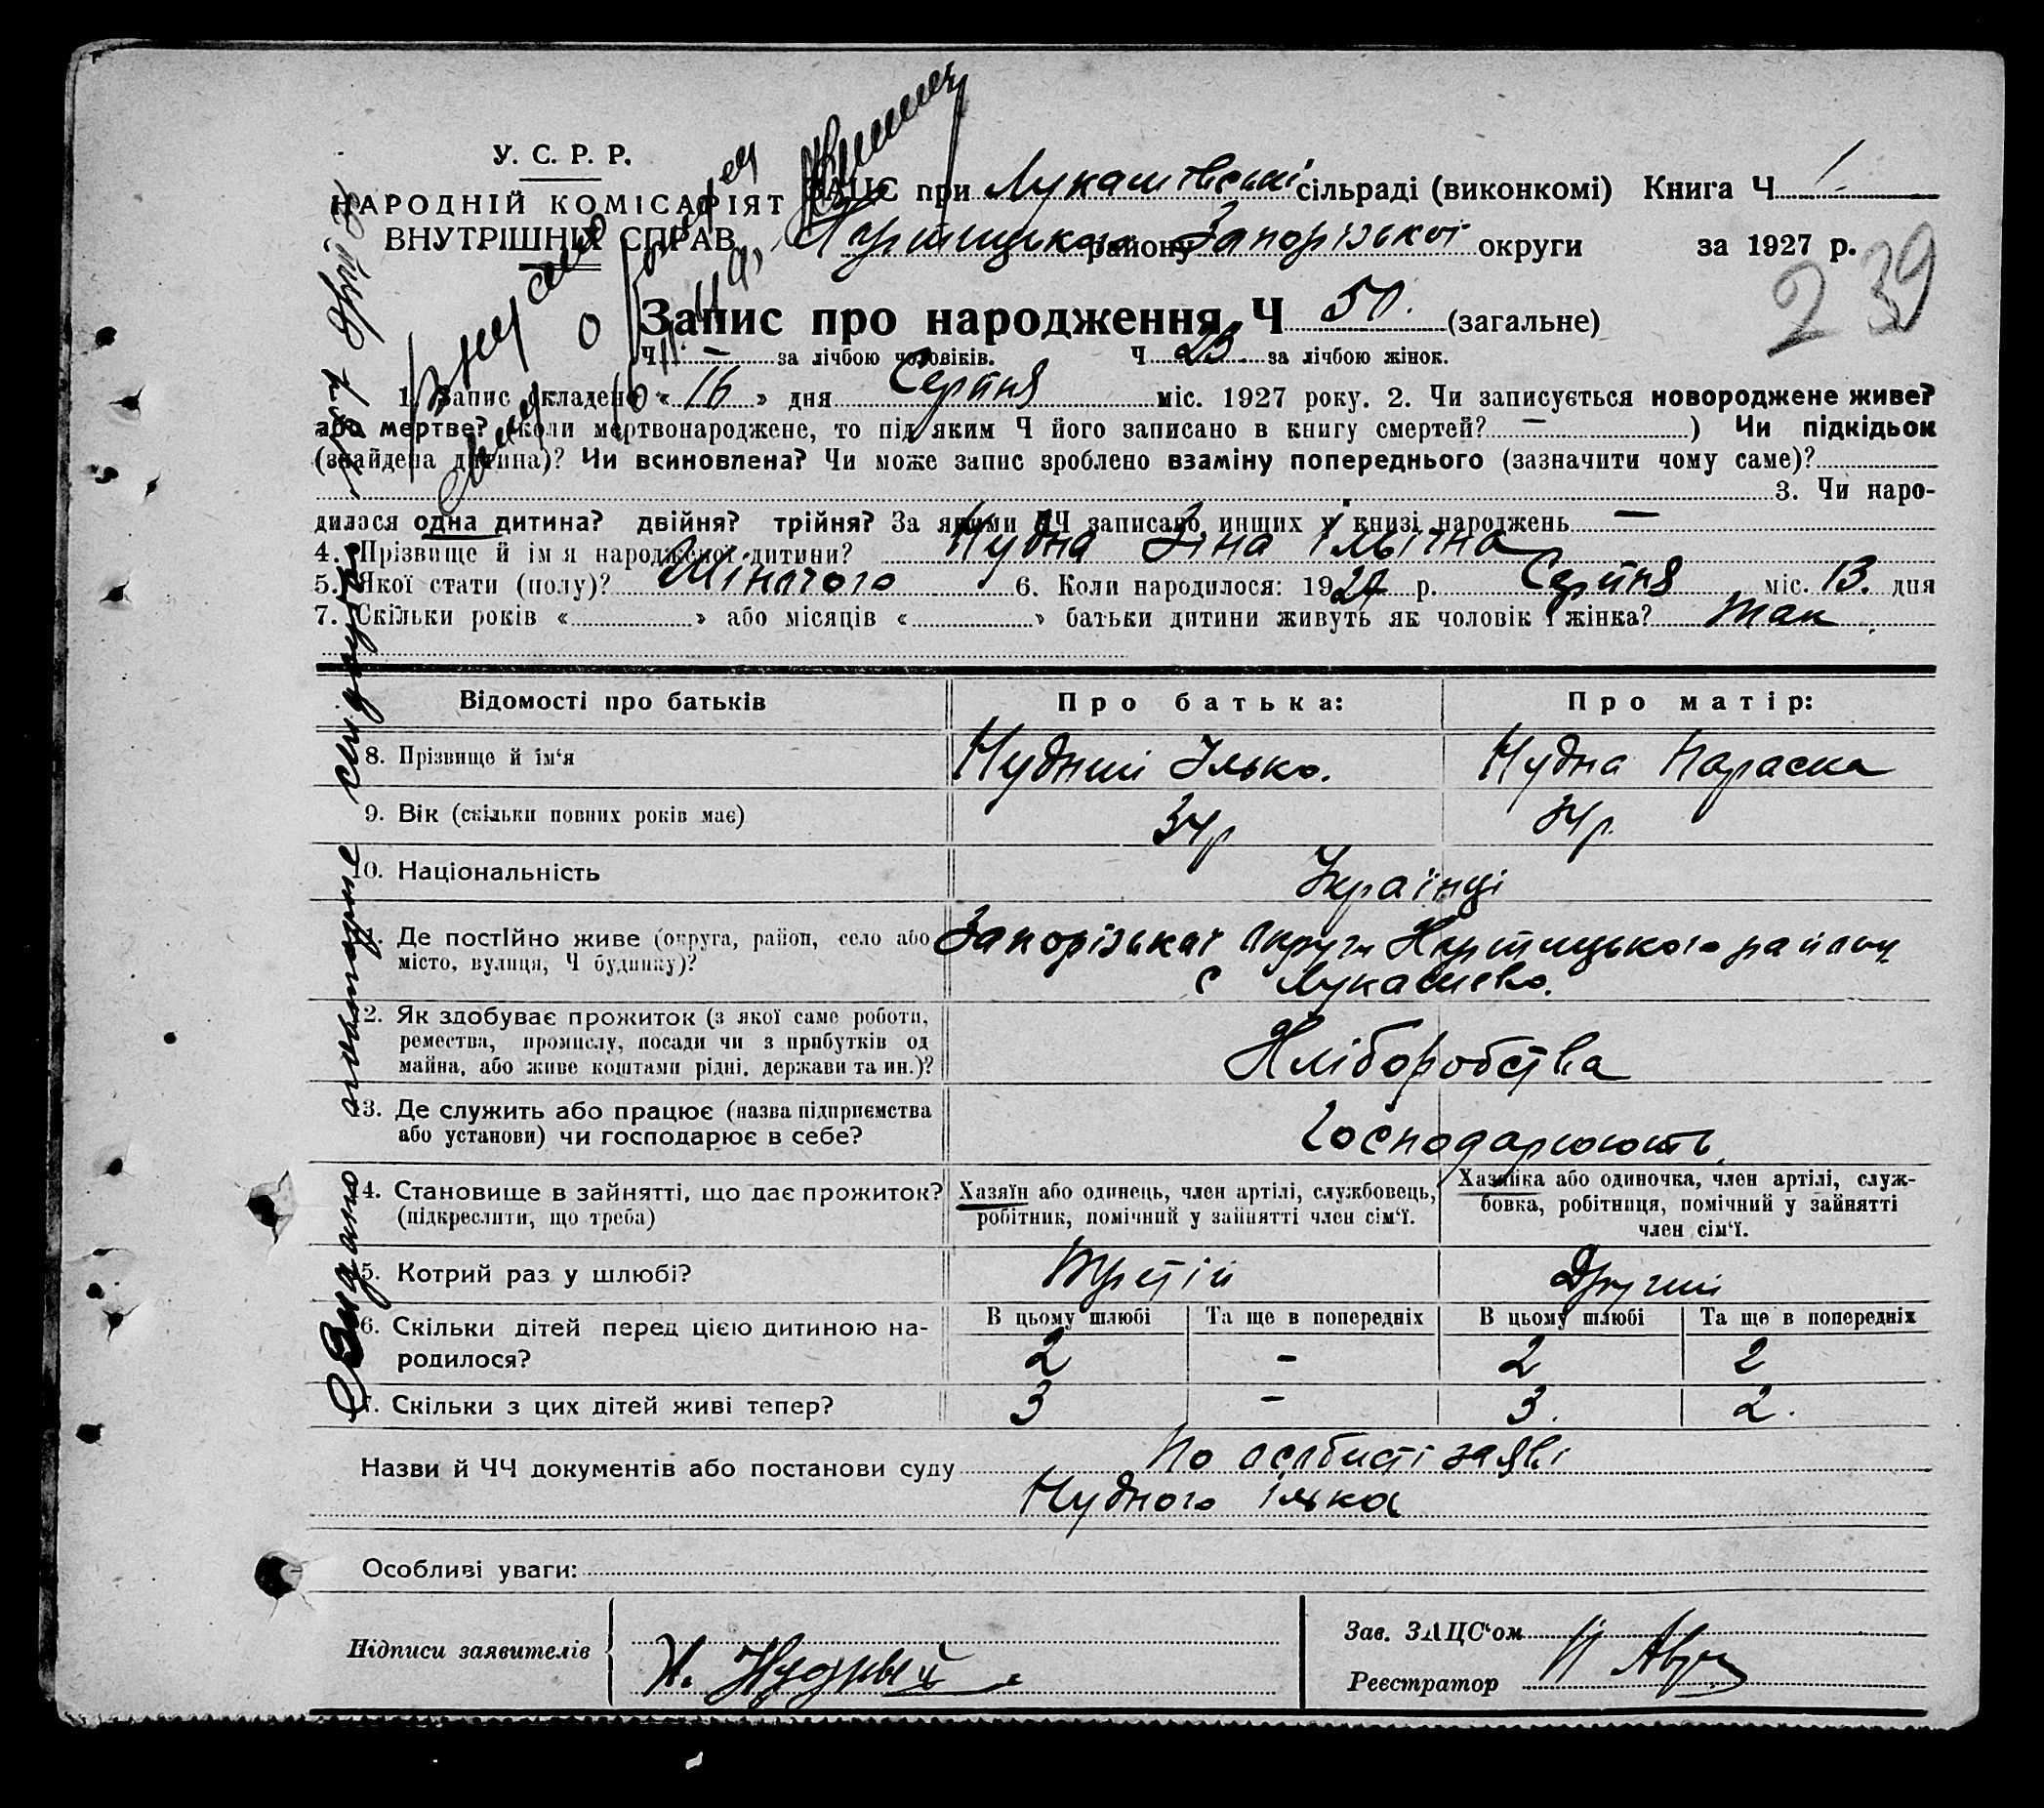 У. С. Р. Р.
НАРОДНІЙ КОМІСАРІЯТ
ВНУТРІШНІХ СПРАВ
ЗАЦС при Лукашівські сільраді (виконкомі) Книга Ч 1
Хортицького району Запорізької округи за 1927 р.
239
Запис про народження Ч 50. (загальне)
Ч — за лічбою чоловіків. Ч 23 за лічбою жінок.
1. Запис складено « 16 » дня Серпня міс. 1927 року. 2. Чи записується новороджене живе?
або мертве? (коли мертвонароджене, то під яким Ч його записано в книгу смертей? — ) Чи підкідьок
(знайдена дитина)? Чи всиновлена? Чи може запис зроблено взаміну попереднього (зазначити чому саме)?
3. Чи наро-
дилася одна дитина? двійня? трійня? За якими ЧЧ записано инших у книзі народжень —
4. Прізвище й ім'я народженої дитини? Нудна Зіна Ільїтна
5. Якої стати (полу)? Жіночого 6. Коли народилося: 1927 р. Серпня міс. 13. дня
7. Скільки років « » або місяців « » батьки дитини живуть як чоловік і жінка? так
Відомості про батьків Про батька: Про матір:
8. Прізвище й ім'я Нудний Ілько. Нудна Параска
9. Вік (скільки повних років має) 34р 34р.
10. Національність Українці
11. Де постійно живе (округа, район, село або Запорізькаї округи Хортицького району
місто, вулиця, Ч будинку)? с Лукашево.
12. Як здобуває прожиток (з якої саме роботи,
ремества, промислу, посади чи з прибутків од Хліборобства
майна, або живе коштами рідні, держави та ин.)?
13. Де служить або працює (назва підприємства
або установи) чи господарює в себе? Господарюють.
14. Становище в зайнятті, що дає прожиток? Хазяїн або одинець, член артілі, службовець, Хазяйка або одиночка, член артілі, служ-
(підкреслити, що треба) робітник, помічний у зайнятті член сім'ї. бовка, робітниця, помічний у зайнятті
член сім'ї.
15. Котрий раз у шлюбі? Третій Другий
В цьому шлюбі Та ще в попередніх В цьому шлюбі Та ще в попередніх
16. Скільки дітей перед цією дитиною на-
родилося? 2 – 2 2
17. Скільки з цих дітей живі тепер? 3 – 3. 2.
Назви й ЧЧ документів або постанови суду По особисті заяві
Нудного Ілька
Особливі уваги:
Підписи заявителів И. Нудный
Зав. ЗАЦС'ом
Реєстратор